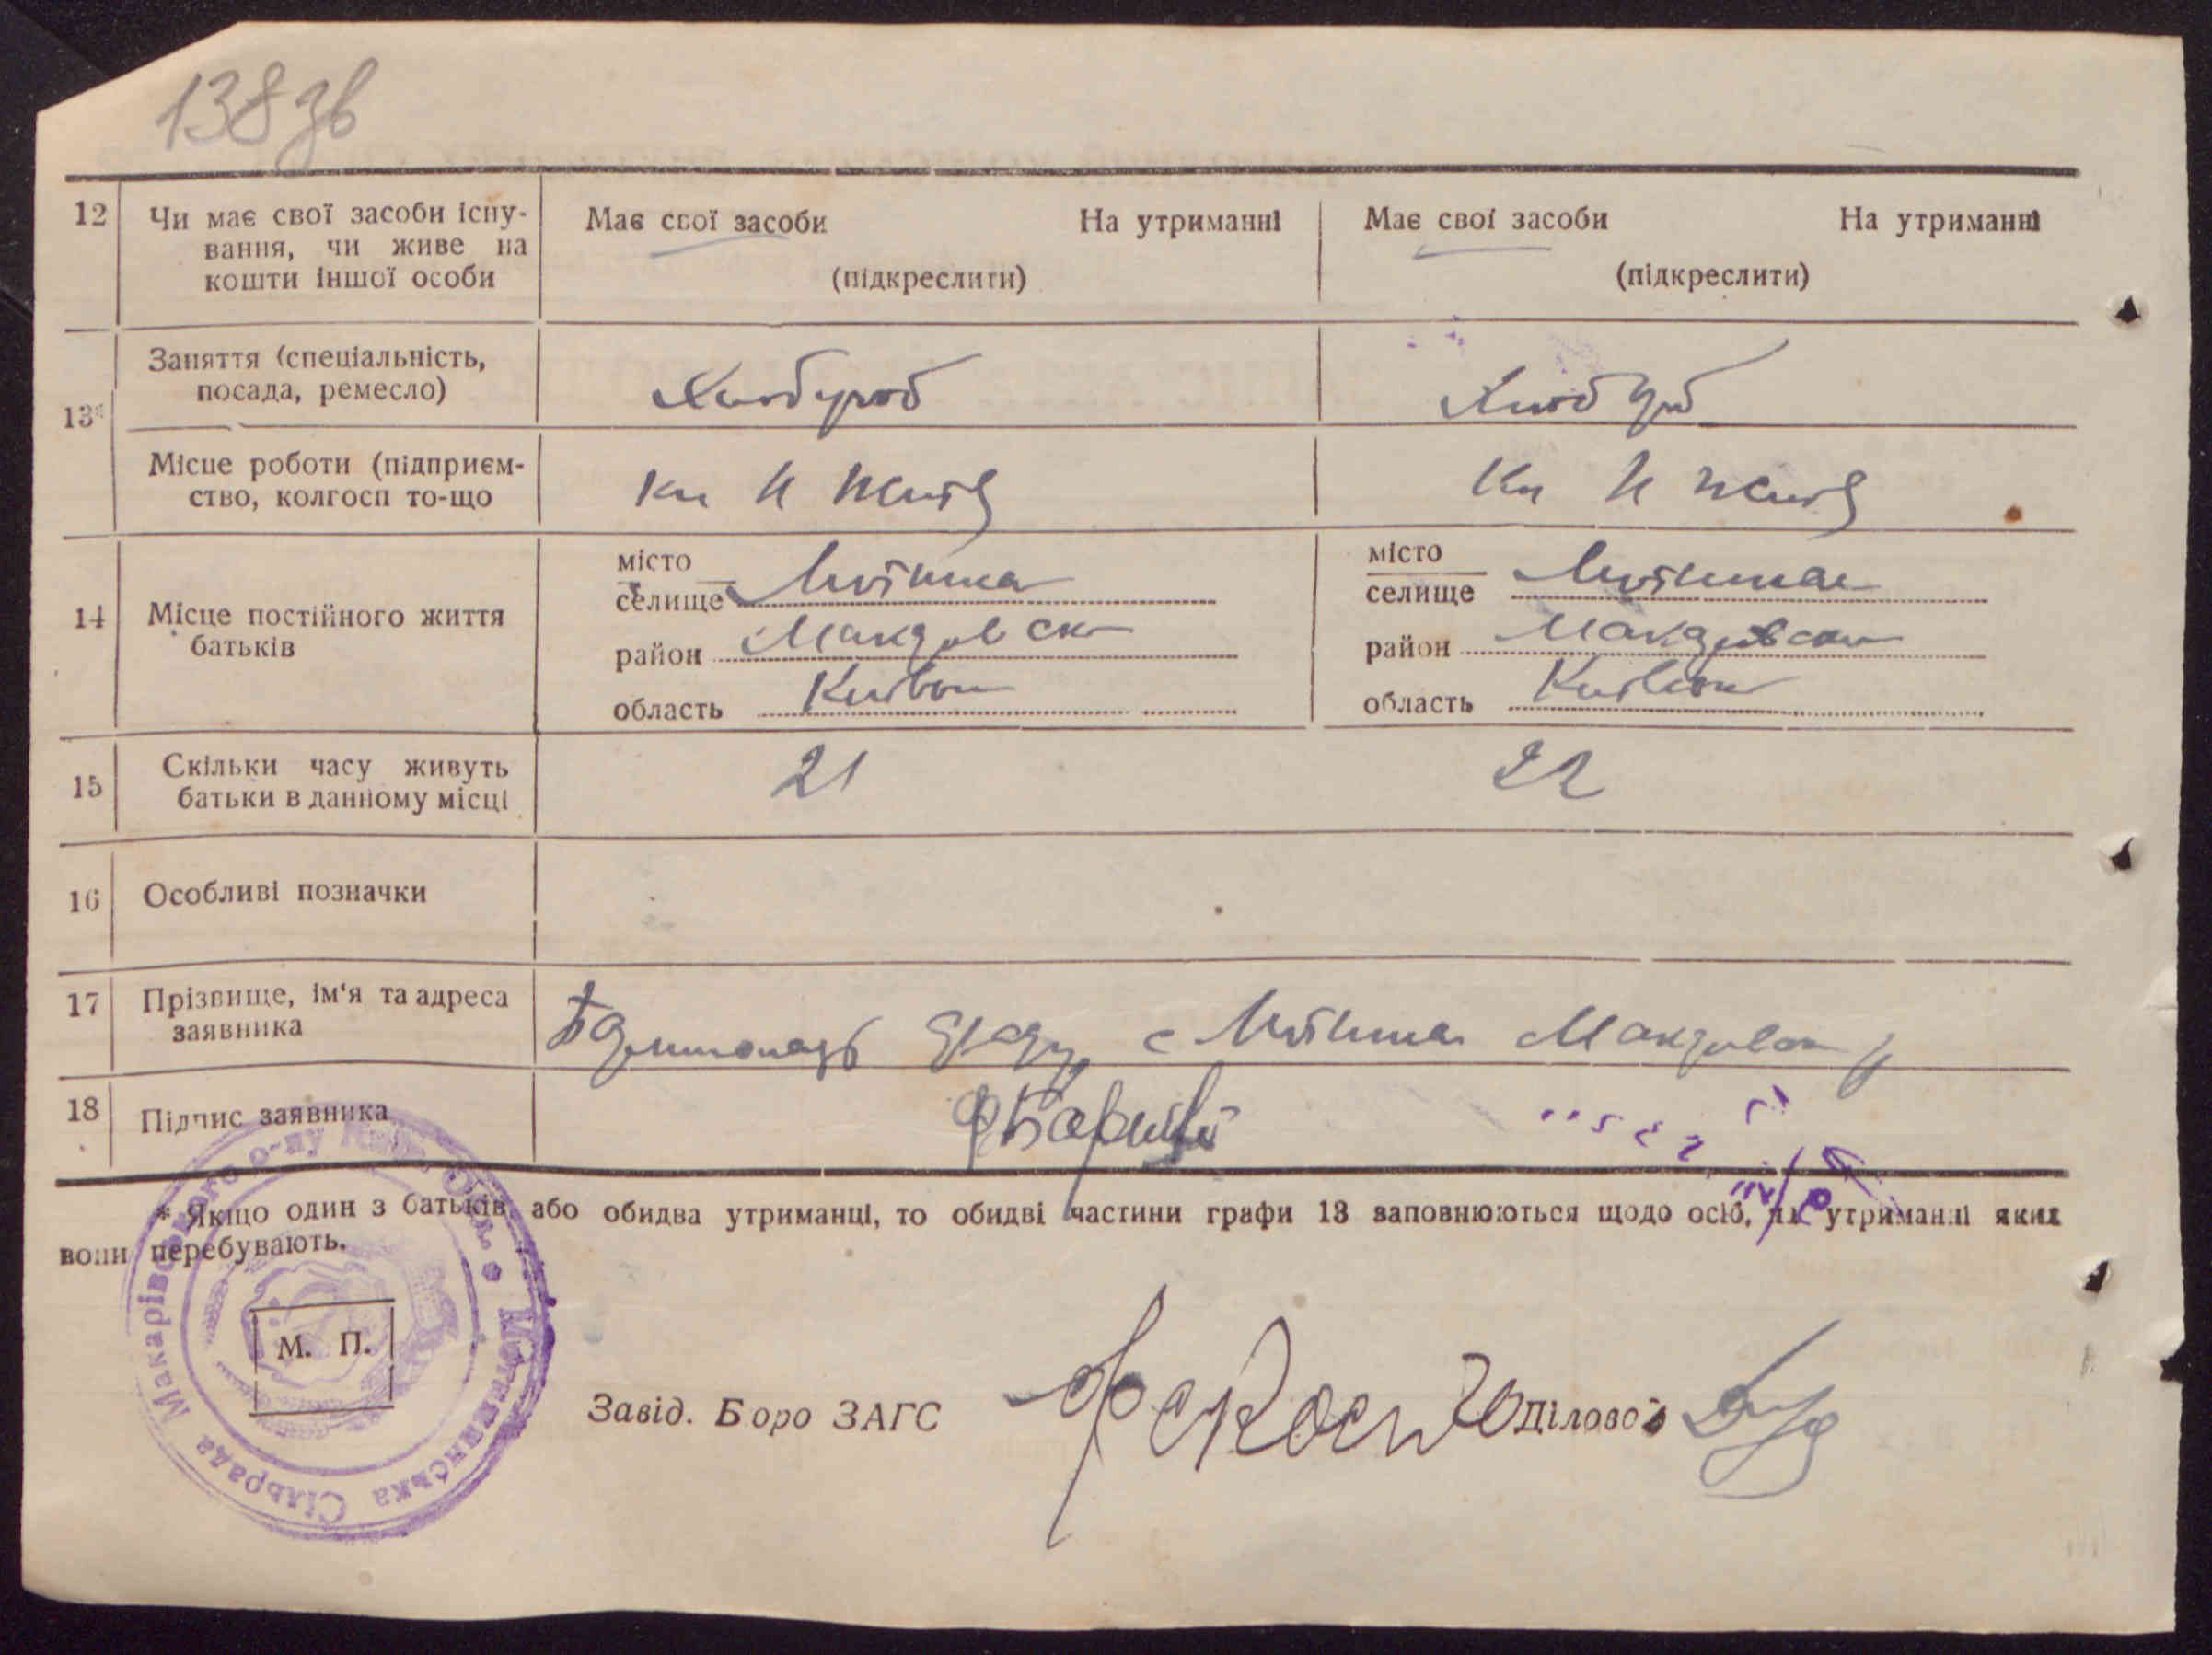 138 зв
12 Чи має свої засоби існу-
вання, чи живе на
кошти іншої особи
Має свої засоби На утриманні
(підкреслити)
Має свої засоби На утриманні
(підкреслити)
13*
Заняття (спеціальність,
посада, ремесло)
Хлібороб
Хлібороб
Місце роботи (підприєм-
ство, колгосп то-що
14 Місце постійного життя
батьків
місто
селище Мотижин
район Макарівськ
область Київськ
місто
селище Мотижин
район Макарівськ
область Київськ
15 Скільки часу живуть
батьки в данному місці
21
22
16 Особливі позначки
17 Прізвище, ім'я та адреса
заявника
с Мотижин Макарівськ р
18 Підпис заявника
* Якщо один з батьків, або обидва утриманці, то обидві частини графи 13 заповнюються щодо осіб, на утриманні яких
вони перебувають.
Макарівського р-ну Київ. Обл. • Мотижинська Сільрада
М. П.
Завід. Бюро ЗАГС
Діловод